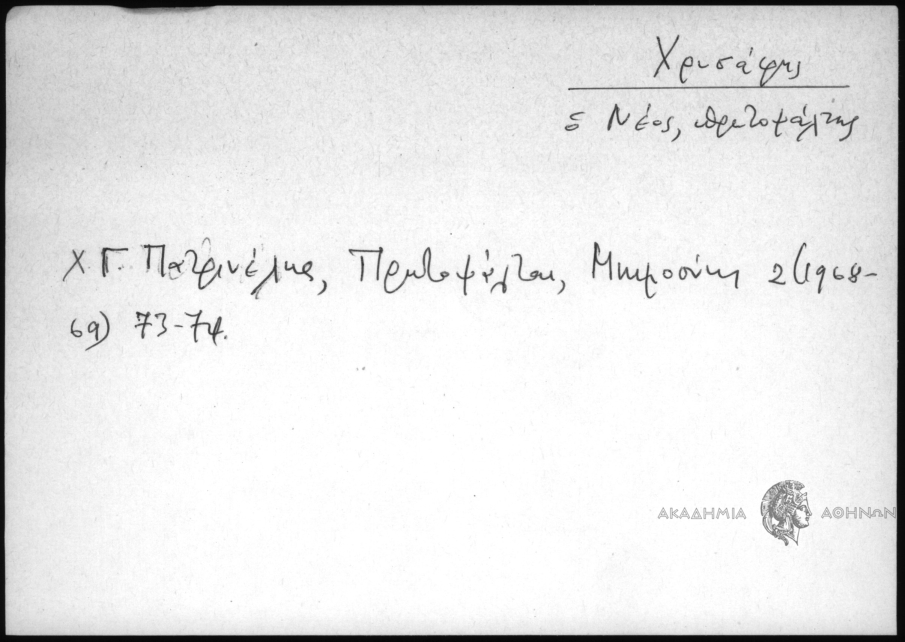 Χρυσάφης
ὁ Νέος, πρωτοψάλτης
Χ. Γ. Πατρινέλης, Πρωτοψάλται, Μνημοσύνη 2 (1968-
69) 73-74.
ΑΚΑΔΗΜΙΑ ΑΘΗΝΩΝ